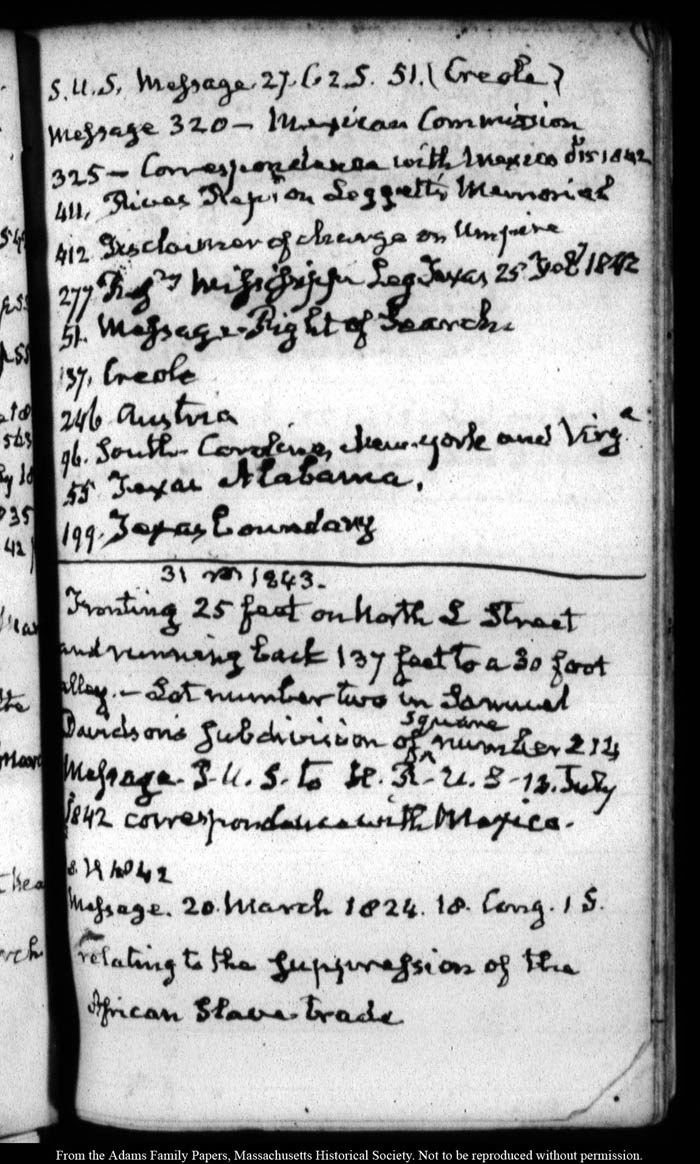 S.U.S. Message. 27. C. 2. S. 51. (Creole)
Message 320 — Mexican Commission
325 — Correspondence with Mexico 1842
411. Rives Rep.t on Leggett's Memorial
412 Disclaimer of charge on Umpire
277 Mississippi Leg. Texas 25 1842
51. Message — Right of Search.
137. Creole
246. Austria
96. South-Carolina, New-York and Virg.a
55 Texas Alabama.
199. Texas Boundary
31 1843.
Fronting 25 feet on North L Street
and running back 137 feet to a 30 foot
alley. — Lot number two in Samuel
Davidson's Subdivision of square number 214
Message. P. U. S. to H. R. U. S. 13. July
1842 correspondence with Mexico.
42
Message. 20. March 1824. 18. Cong. 1 S.
relating to the suppression of the
African Slave-trade
From the Adams Family Papers, Massachusetts Historical Society. Not to be reproduced without permission.